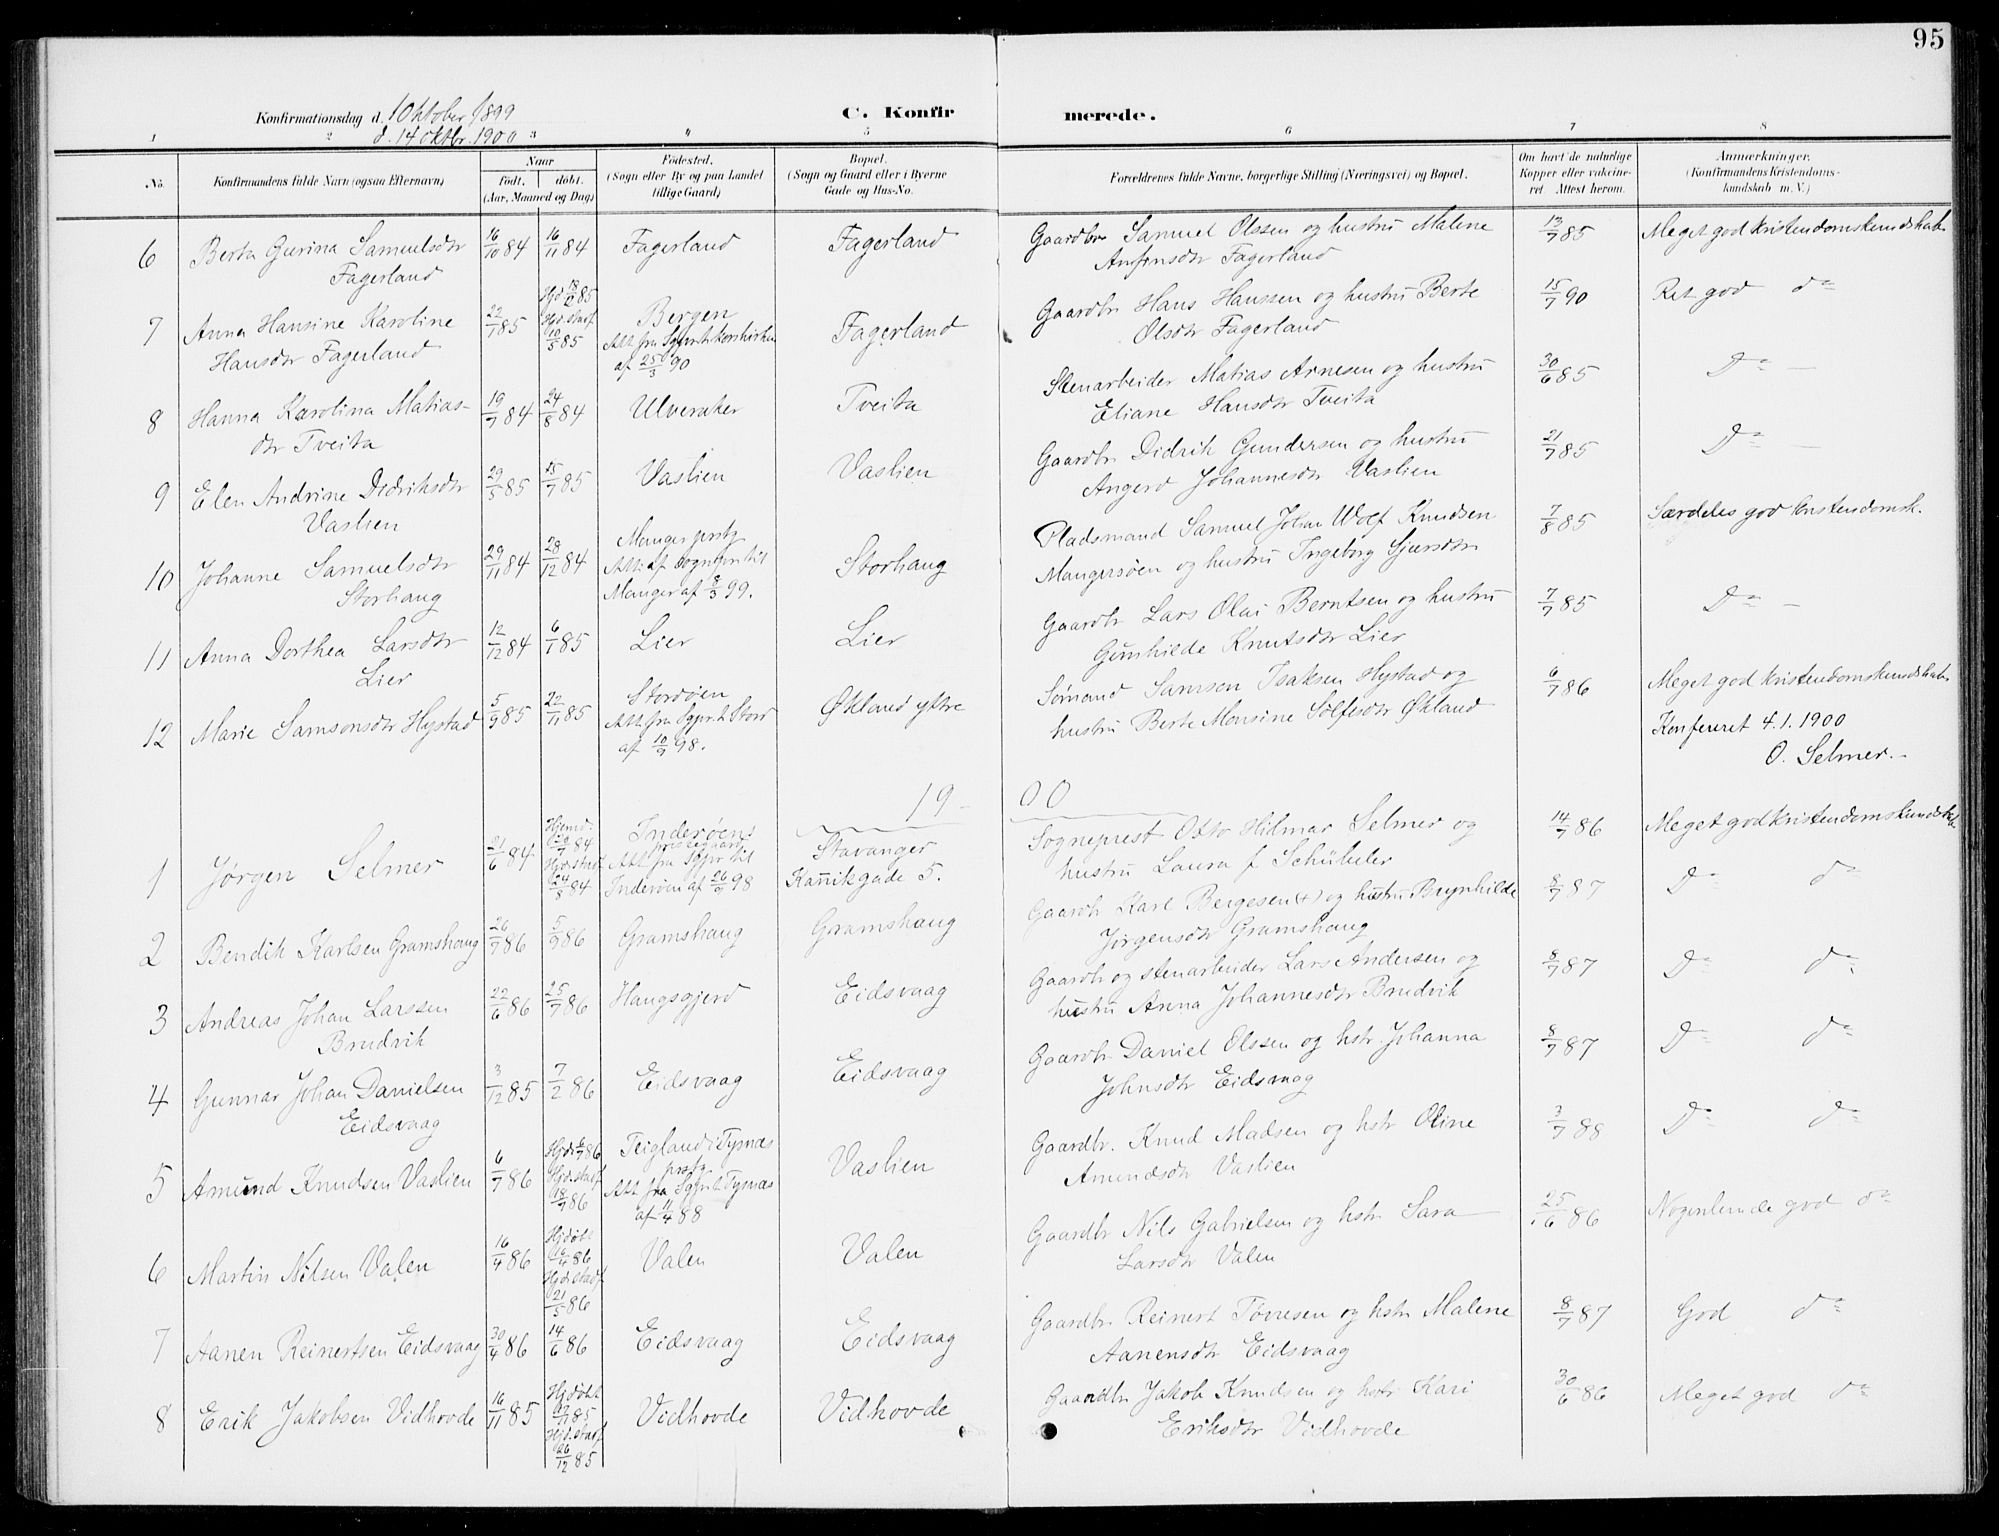 95
Konfirmationsdag d. 1 Oktober 1899
d. 14 oktbr. 1900
C. Konfirmerede.
1 2 3 4 5 6 7 8
No.
Konfirmandens fulde Navn (ogsaa Efternavn)
Naar
født. døbt.
(Aar, Maaned og Dag)
Fødested.
(Sogn eller By og paa Landet tillige Gaard)
Bopæl.
(Sogn og Gaard eller i Byerne Gade og Hus-No.
Forældrenes fulde Navne, borgerlige Stilling (Næringsvei) og Bopæl.
Om havt de naturlige Kopper eller vakcineret. Attest herom.
Anmærkninger.
(Konfirmandens Kristendomskundskab m. V.)
6 Berta Gurina Samuelsdtr 16/10 84 16/11 84 Fagerland Fagerland Gaardbr Samuel Olssen og hustru Malene 13/7 85 Meget god kristendomskundskab
Fagerland Anfinsdtr Fagerland
7 Anna Hansine Karoline 22/1 85 Hjd 18/2 85 Hjd. stadf 10/5 85 Bergen Fagerland Gaardbr Hans Hanssen og hustru Berte 15/7 90 Ret god do
Hansdtr Fagerland Att fra Sgpr. t. Korskirken af 25/3 90 Olsdtr Fagerland
8 Hanna Karolina Matias- 19/7 84 24/8 84 Ulveraker Tveita Stenarbeider Matias Arnesen og hustru 30/6 85 Do —
dtr Tveita Eliane Hansdtr Tveita
9 Elen Andrine Didriksdtr 29/5 85 15/7 85 Vaslien Vaslien Gaardbr Didrik Gundersen og hustru 21/7 85 Do —
Vaslien Angerd Johannesdtr Vaslien
10 Johanne Samuelsdtr 29/11 84 28/12 84 Manger prstg Storhaug Pladsmand Samuel Johan Wolf Knudsen 7/8 85 Særdeles god kristendomsk.
Storhaug Att: af sognepr til Manger af 8/3 99. Mangersøen og hustru Ingeborg Sjursdtr
11 Anna Dorthea Larsdtr 12/12 84 6/1 85 Lier Lier Gaardbr Lars Olai Berntsen og hustru 7/7 85 Do —
Lier Gunhilde Knutsdtr Lier
12 Marie Samsonsdtr Hystad 5/9 85 22/11 85 Stordøen Økland ytre Sømand Samson Isaksen Hystad og 6/7 86 Meget god kristendomskundskab
Att fra Sgpr. t. Stord af 10/9 98. hustru Berte Monsine Sølfesdtr Økland
Konfereret 4.1.1900
O. Selmer.
1900
1 Jørgen Selmer 21/6 84 Hjemd. 20/7 84 Hjd. stadf 24/8 84 Inderøens prestegaard Stavanger Sogneprest Otto Hilmar Selmer og 14/7 86 Meget god kristendomskundskab
Att fra Sgpr til Inderøen af 26/9 98 Kannikgade 5. hustru Laura f Schübeler
2 Bendik Karlsen Gramshaug 26/7 86 5/9 86 Gramshaug Gramshaug Gaardbr Karl Bergesen (+) og hustru Brynhilde 8/7 87 Do do
Jørgensdtr Gramshaug
3 Andreas Johan Larssen 22/6 86 25/7 86 Haugsgjerd Eidsvaag Gaardbr og stenarbeider Lars Andersen og 8/7 87 Do do
Brudvik hustru Anna Johannesdtr Brudvik
4 Gunnar Johan Danielsen 3/12 85 7/2 86 Eidsvaag Eidsvaag Gaardbr Daniel Olssen og hstr. Johanna 8/7 87 Do do
Eidsvaag Johnsdtr Eidsvaag
5 Amund Knudsen Vaslien 6/7 86 Hjd 6/7 86 Hjd. stadf 18/7 86 Teigland i Tysnæs prstg Vaslien Gaardbr. Knud Madsen og hstr Oline 3/7 88 Do do
Att fra Sgpr t. Tysnæs af 11/4 88 Amundsdtr Vaslien
6 Martin Nilsen Valen 16/4 86 Hjdøbt 16/4 86 Hjd. stadf 21/5 86 Valen Valen Gaardbr Nils Gabrielsen og hstr Sara 25/6 86 Nogenlunde god do
Larsdtr Valen
7 Aanen Reinertsen Eidsvaag 30/4 86 14/6 86 Eidsvaag Eidsvaag Gaardbr Reinert Torresen og hstr Malene 8/7 87 God do
Aanensdtr Eidsvaag
8 Erik Jakobsen Vidhovde 16/11 85 Hjdøbt 85 Hjd. stadf 26/12 85 Vidhovde Vidhovde Gaardbr Jakob Knudsen og hstr Kari 30/6 86 Meget god do
Eriksdtr Vidhovde